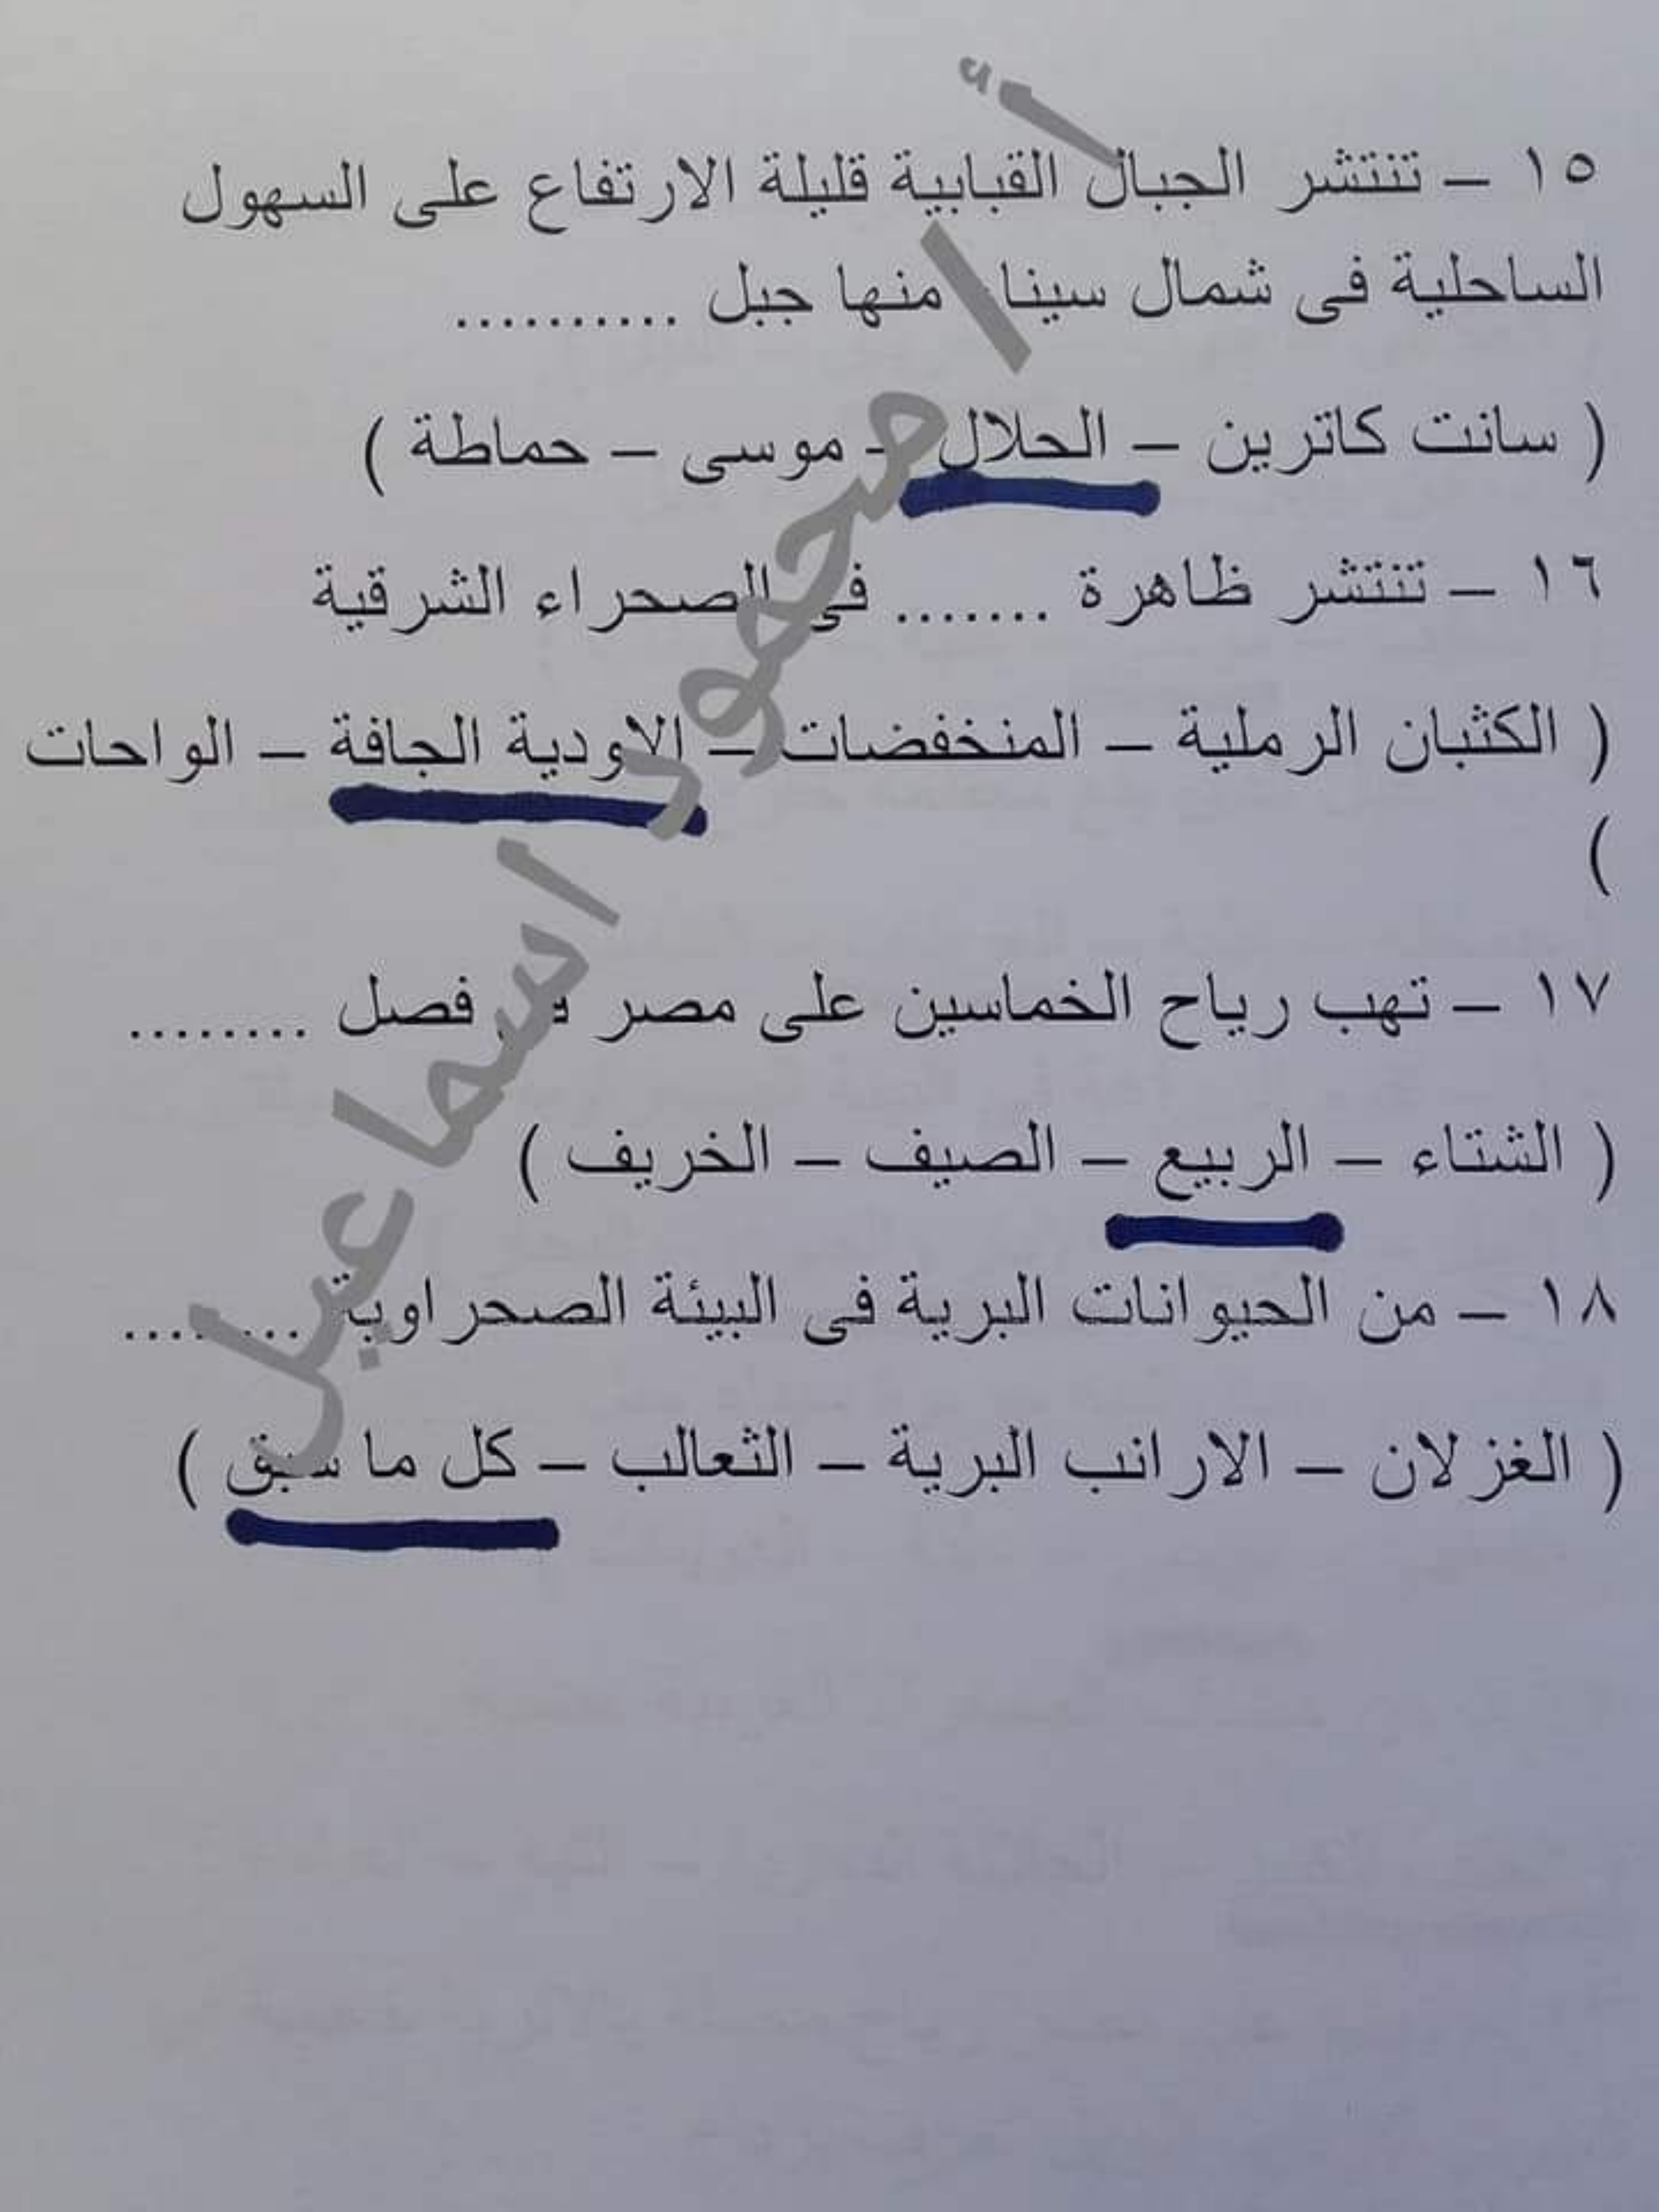 ١٥ – تنتشر الجبال القبابية قليلة الارتفاع على السهول
الساحلية فى شمال سيناء منها جبل ..........
( سانت كاترين – الحلال – موسى – حماطة )
١٦ – تنتشر ظاهرة ....... فى الصحراء الشرقية
( الكثبان الرملية – المنخفضات – الاودية الجافة – الواحات
)
١٧ – تهب رياح الخماسين على مصر فى فصل ........
( الشتاء – الربيع – الصيف – الخريف )
١٨ – من الحيوانات البرية فى البيئة الصحراوية ........
( الغزلان – الارانب البرية – الثعالب – كل ما سبق )
أ / محمود اسماعيل